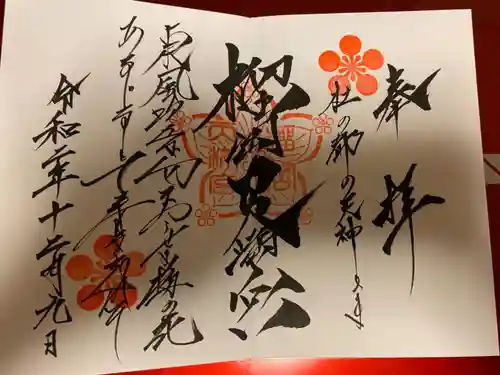 奉拝
杜の都の天神さま
榴岡天満宮
東風吹かば匂ひおこせよ梅の花
あるじなしとて春な忘れそ
令和二年十二月九日